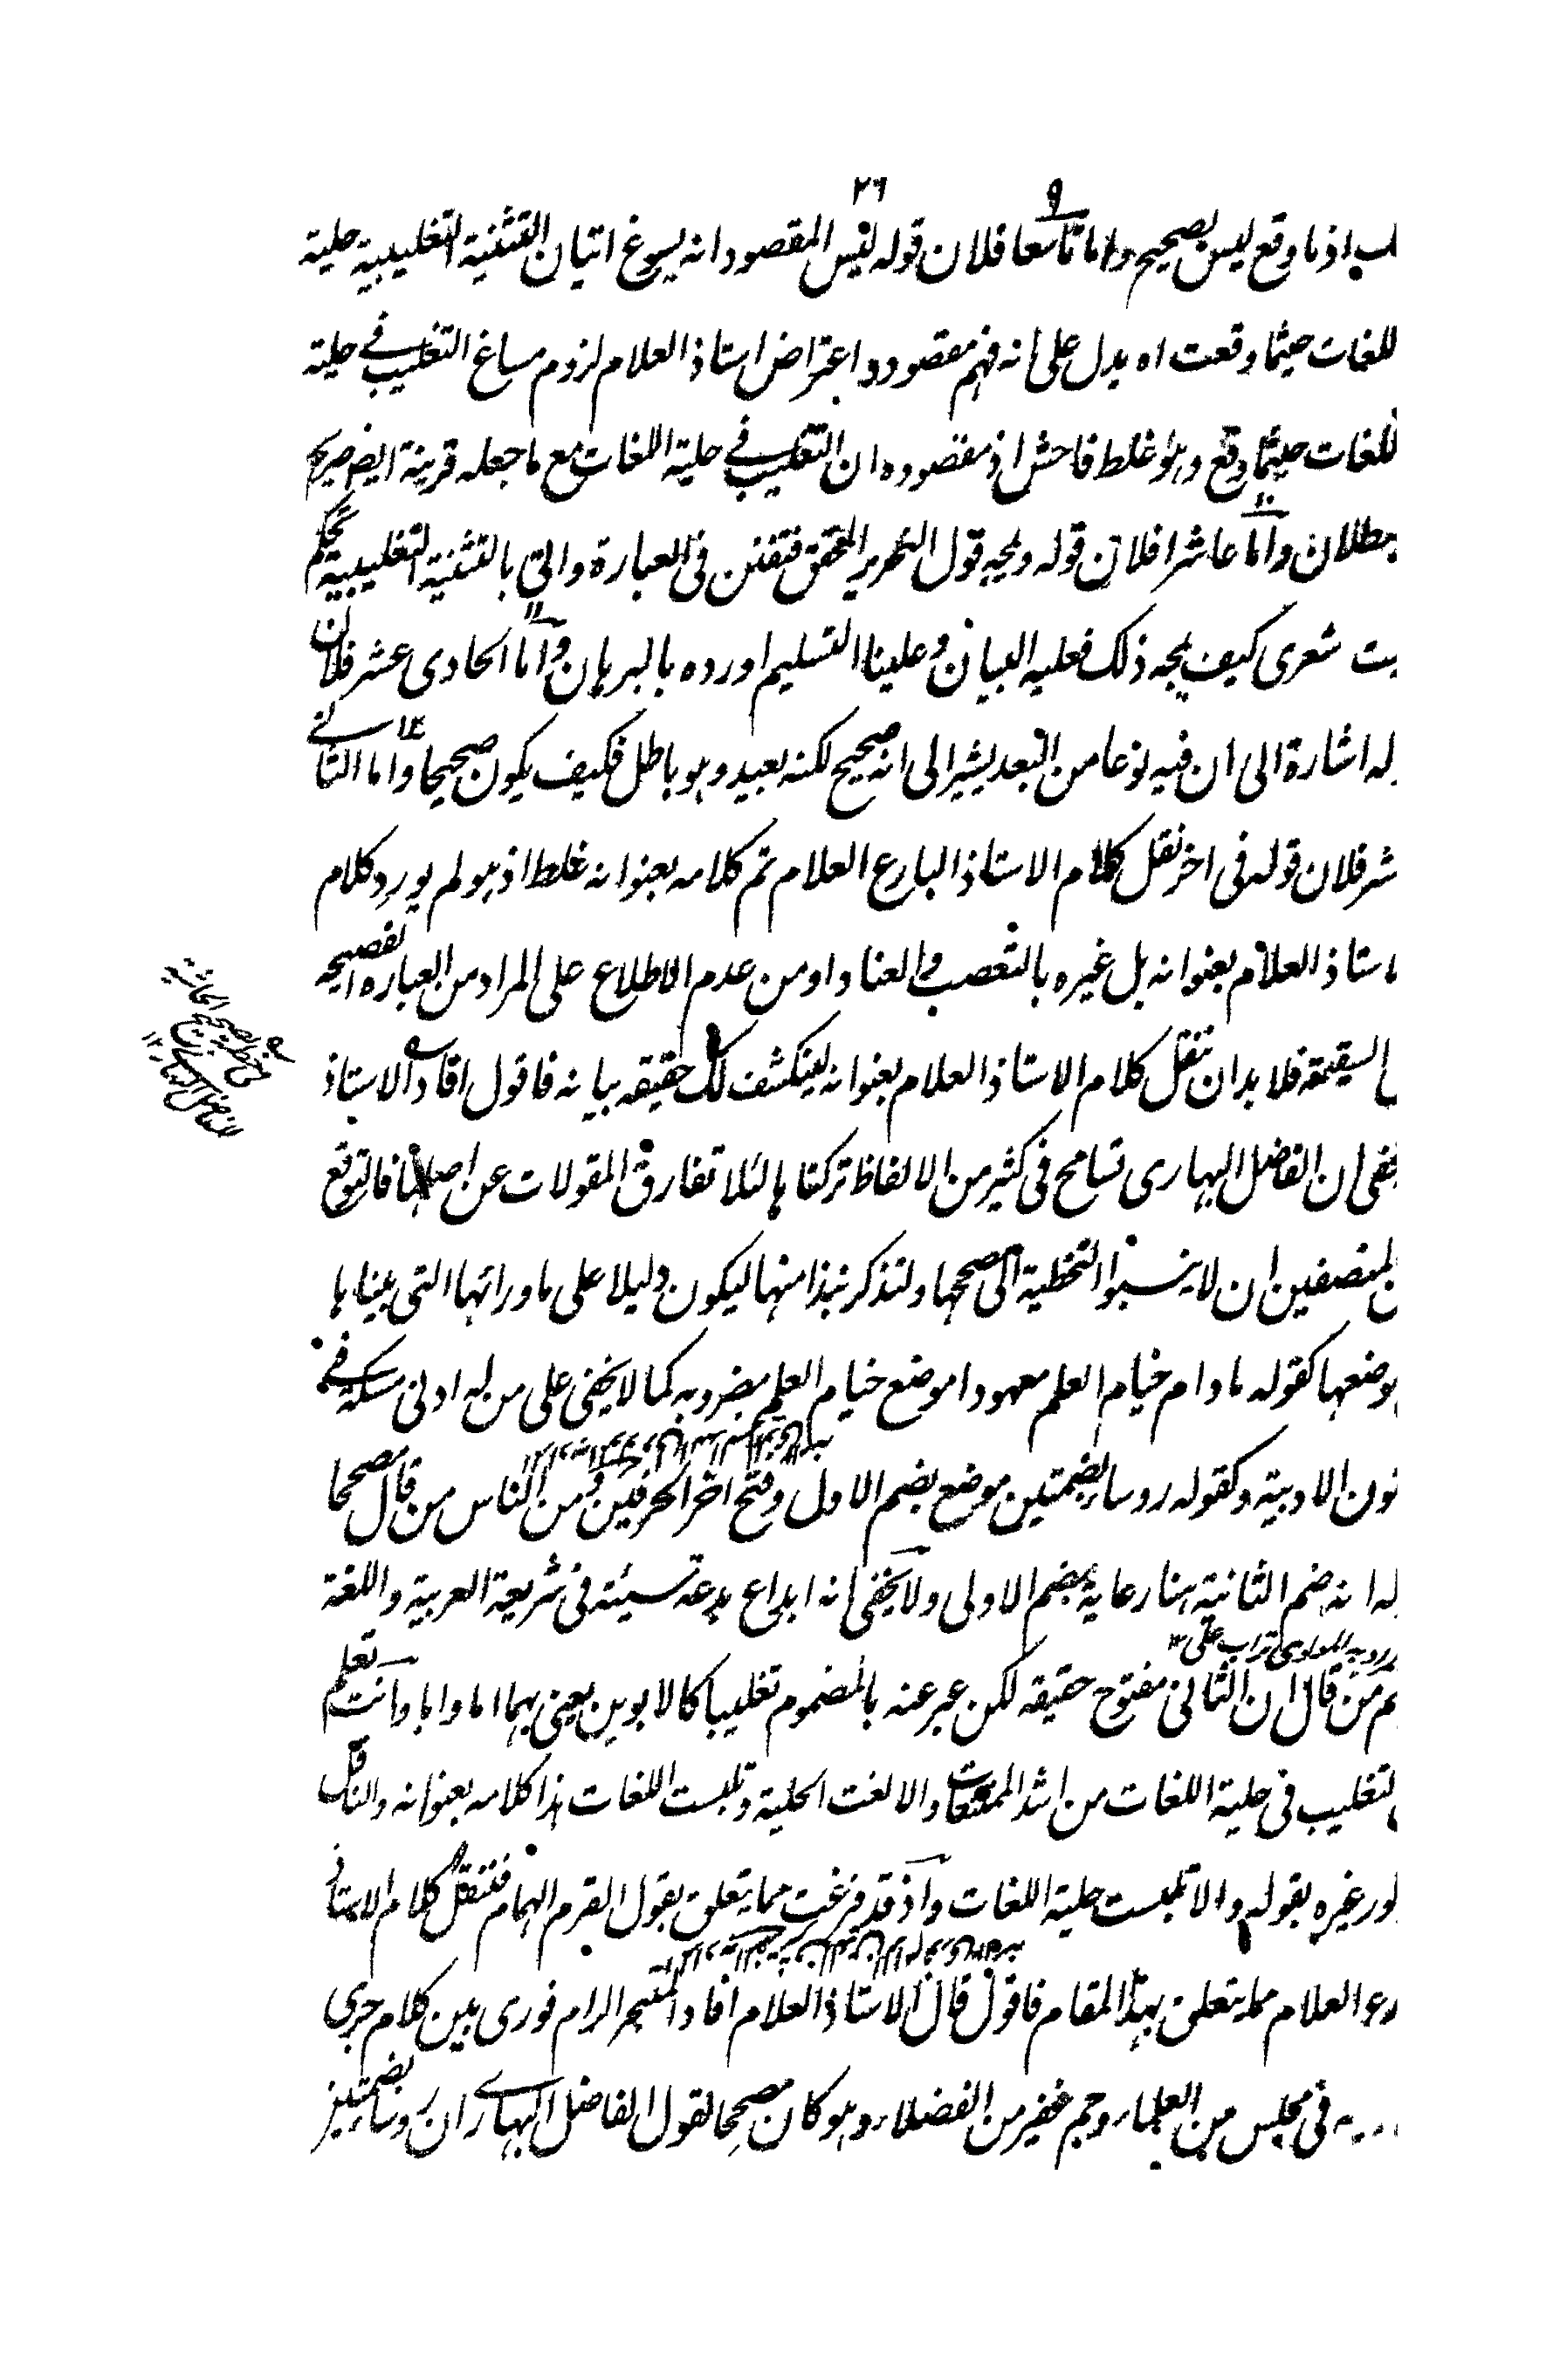 ٢٦
لب اذ ما وقع ليس بصحيح واما تاسعا فلان قوله ليس المقصود انه يسوغ اتيان التثنية التغليبية حلية
اللغات حيثما وقعت اه يدل على انه فهم مقصود اعتراض استاذ العلام لزوم مساغ التغليب في حلية
اللغات حيثما وقع وهو غلط فاحش اذ مقصوده ان التغليب في حلية اللغات مع ما جعله قرينة ايض صريح
البطلان واما عاشرا فلان قوله ويجه قول النحرير المحقق فتفنن في العبارة واتى بالتثنية التغليبية تحكم
ليت شعرى كيف يجه ذلك فعليه البيان وعلينا التسليم اورده بالبرهان واما الحادى عشر فلان
قوله اشارة الى ان فيه نوعا من البعد يشير الى انه صحيح لكنه بعيد وهو باطل فكيف يكون صحيحا واما الثانے
عشر فلان قوله فى اخر نقل كلام الاستاذ البارع العلام تم كلامه بعنوانه غلط اذ هو لم يورد كلام
الاستاذ العلام بعنوانه بل غيره بالتعصب والعناد او من عدم الاطلاع على المراد من العبارة الفصيحة
السقيمة فلا بد ان ننقل كلام الاستاذ العلام بعنوانه لينكشف لك حقيقة بيانه فاقول افاد الاستاذ
يخفى ان الفاضل البهارى تسامح فى كثير من الالفاظ تركناها لئلا تفارق المقولات عن اصلها فالمتوقع
من المنصفين ان لا ينسبوا التخطية الى مصححها ولنذكر نبذا منها ليكون دليلا على ما ورائها التى بيناها
موضعها كقوله ما دام خيام العلم معهودا موضع خيام العلم مضروبه كما لا يخفى على من له ادنى مسكة فے
فنون الادبية وكقوله روساء بضمتين موضع بضم الاول وفتح اخر الحرفين ومن الناس من قال مصححا
له انه ضم الثانية هنا رعاية بضم الاولى ولا يخفى انه ابداع بدعة سيئة فى شريعة العربية واللغة
المولوى تراب على
ثم من قال ان الثانى مفتوح حقيقة لكن عبر عنه بالمضموم تغليبا كالابوين يعنى بهما اما وابا وانت تعلم
التغليب فى حلية اللغات من اشد الممتنعات والا لغت الحلية وتلبست اللغات هذا كلامه بعنوانه والناقل
غيره بقوله والا تلبست حلية اللغات واذ قد فرغت مما يتعلق بقول القرم الهمام فننقل كلام الاستاذ
العلام مما يتعلق بهذا المقام فاقول قال الاستاذ العلام افاد الرام فورى بين كلام جرى
فى مجلس من العلماء وجم غفير من الفضلاء وهو كان مصححا لقول الفاضل البهارے ان روساء بضمتين